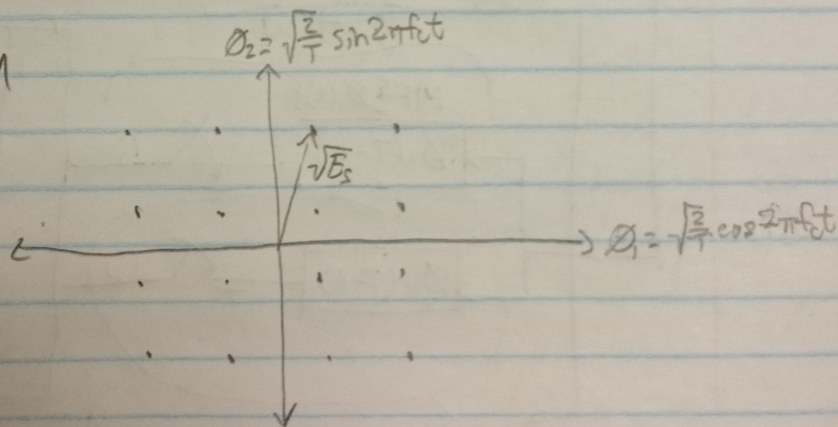 ∅₂ = √(2/T) sin2πf꜀t
√Eₛ
∅₁ = √(2/T) cos2πf꜀t